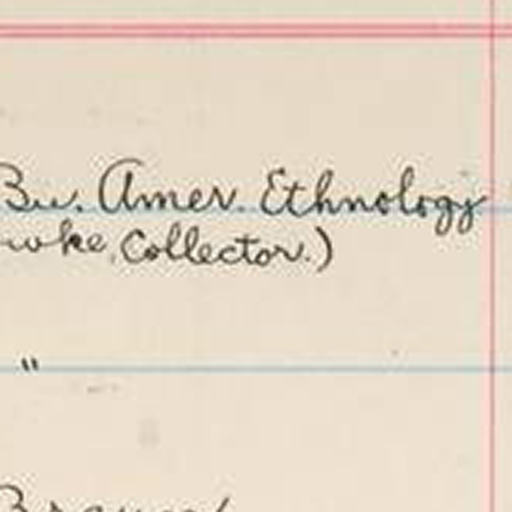 Bu. Amer. Ethnology
wke, Collector.)
"